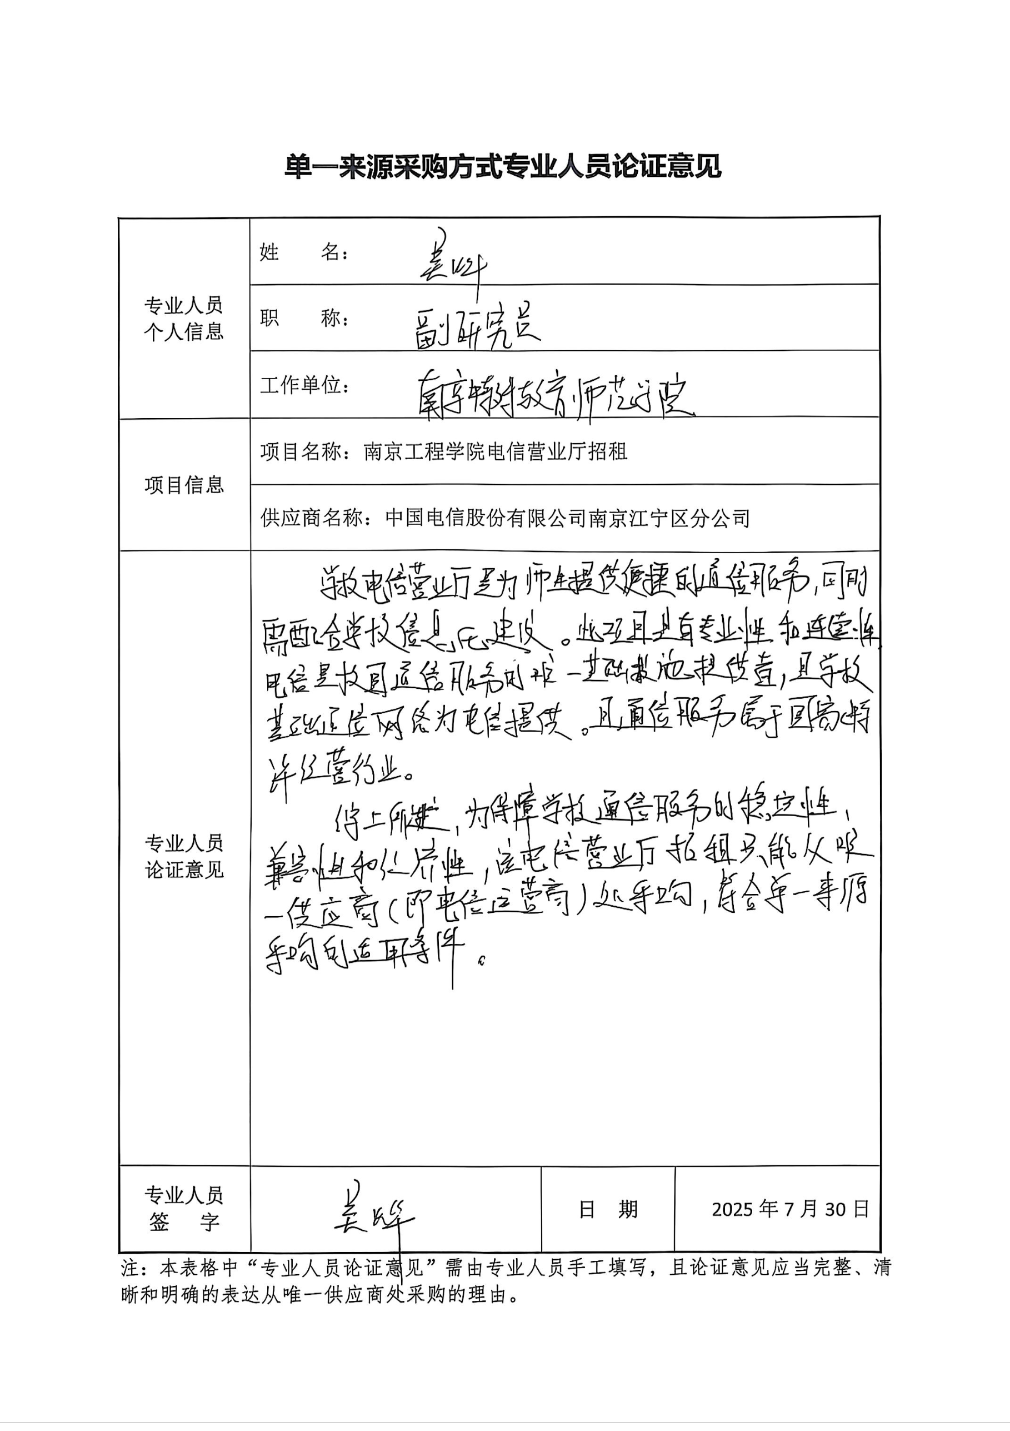 单一来源采购方式专业人员论证意见
专业人员
个人信息
姓 名：吴晔
职 称：副研究员
工作单位：南京特殊教育师范学院
项目信息
项目名称：南京工程学院电信营业厅招租
供应商名称：中国电信股份有限公司南京江宁区分公司
专业人员
论证意见
学校电信营业厅是为师生提供便捷的通信服务，同时
需配合学校信息化建设。此项目具有专业性和连续性，
电信是校园通信服务的唯一基础设施提供者，且学校
基础通信网络为电信提供。且通信服务属于国家特
许经营行业。
综上所述，为保障学校通信服务的稳定性，
兼容性和经济性，该电信营业厅招租只能从唯
一供应商（即电信运营商）处采购，符合单一来源
采购的适用条件。
专业人员
签 字
吴晔
日 期
2025 年 7 月 30 日
注：本表格中“专业人员论证意见”需由专业人员手工填写，且论证意见应当完整、清
晰和明确的表达从唯一供应商处采购的理由。